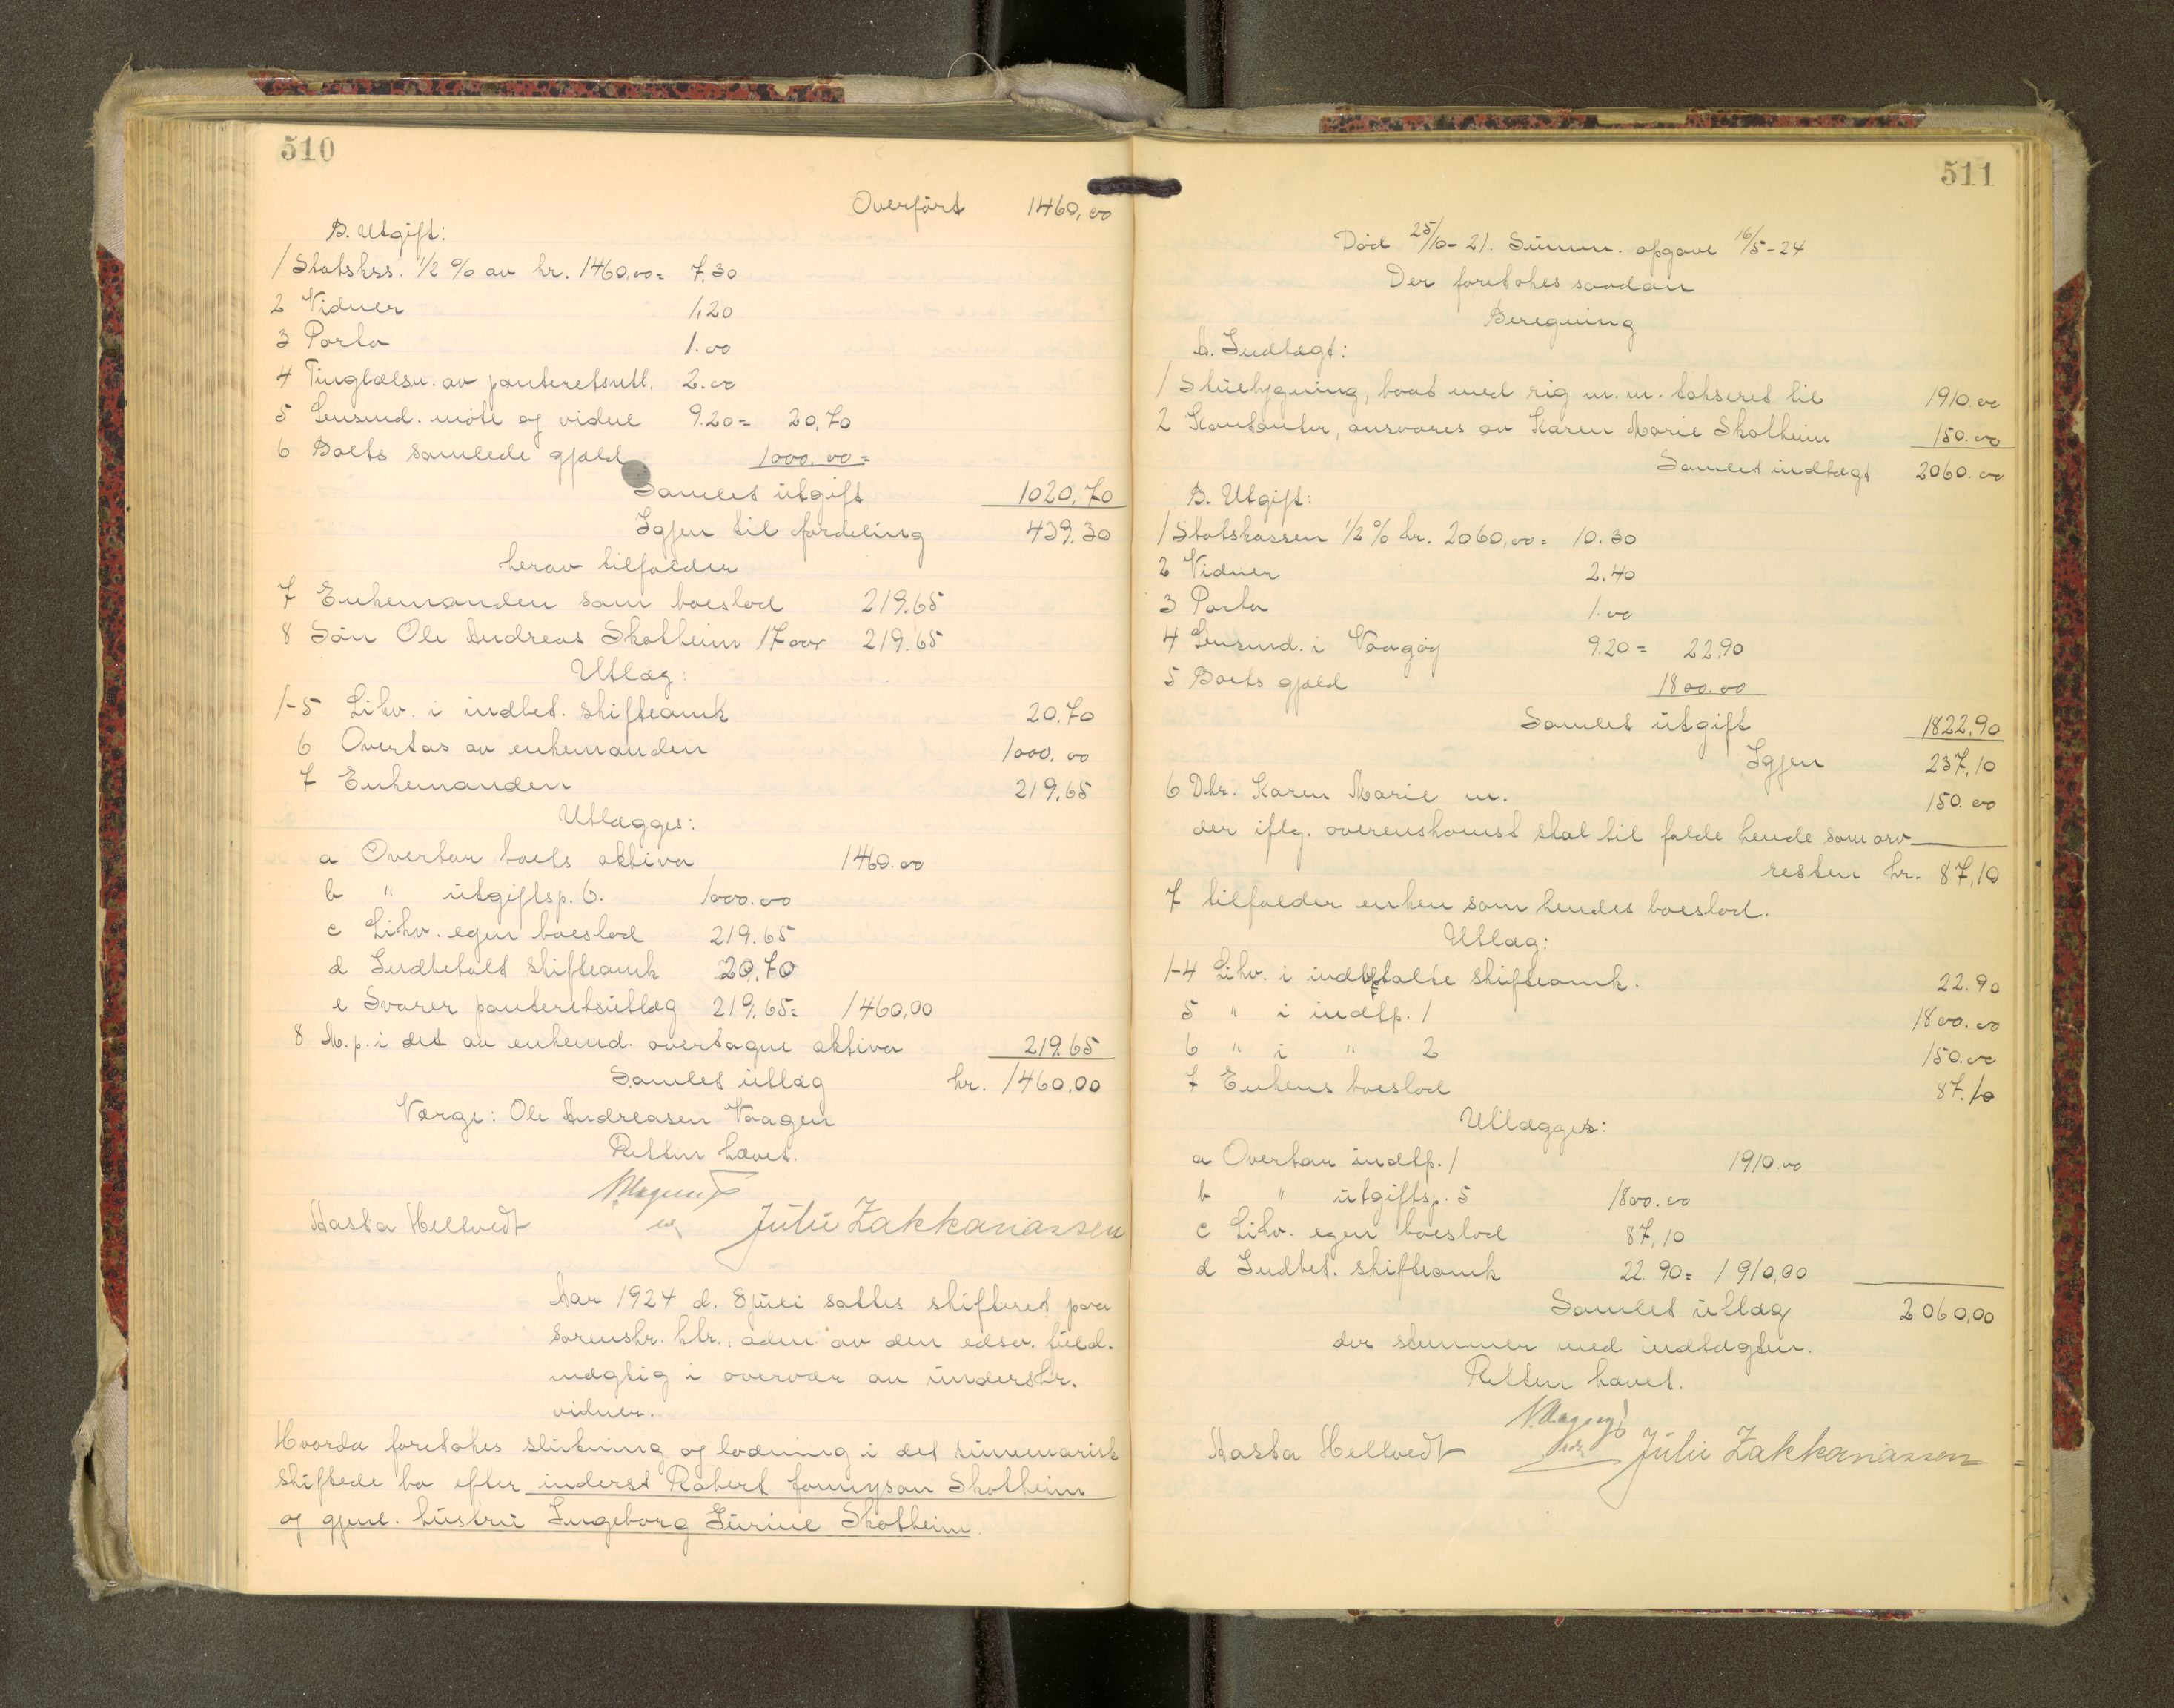 510
Overført 1460,00
B. Utgift:
1 Statskss. 1/2 % av kr. 1460.00= 7.30
2 Vidner 1,20
3 Porto 1.00
4 Tinglæsn. av panteretsutl. 2.00
5 Lensmd. møte og vidne 9.20= 20,70
6 Boets samlede gjæld 1000,00=
Samlet utgift 1020,70
Igjen til fordeling 439.30
herav tilfalder
7 Enkemanden som boeslod 219.65
8 Søn Ole Andreas Skotheim 17 aar 219.65
Utlæg:
1-5 Likv. i indbet. skifteomk 20.70
6 Overtas av enkemanden 1000.00
7 Enkemanden 219.65
Utlægges:
a Overtar boets aktiva 1460.00
b " utgiftsp. 6. 1000.00
c Likv. egen boeslod 219.65
d Indbetalt skifteomk 20,70
e Svarer panteretsutlæg 219.65= 1460,00
8 M. p. i det av enkemd. overtagne aktiva 219.65
Samlet utlæg kr. 1460,00
Værge: Ole Andreasen Vaagen
Retten hævet.
Aasta Heltvedt Julie Zakkariassen
Aar 1924 d. 8 juli sattes skifteret paa
sorenskr. ktr., adm. av den edsv. fuld-
mægtig i overvær av underskr.
vidner.
Hvorda foretokes slutning og lodning i det summarisk
skiftede bo efter inderst Robert Jonnyson Skotheim
og gjenl. hustru Ingeborg Jurine Skotheim.
511
Død 25/10-21. Summ. opgave 16/5-24
Der foretokes saadan
Beregning
A. Indtægt:
1 Stuebygning, baat med rig m. m. takseret til 1910.00
2 Kontanter, ansvares av Karen Marie Skotheim 150.00
Samlet indtægt 2060.00
B. Utgift:
1 Statskassen 1/2 % kr. 2060,00= 10.30
2 Vidner 2.40
3 Porto 1.00
4 Lensmd. i Vaagøy 9.20= 22,90
5 Boets gjæld 1800.00
Samlet utgift 1822,90
Igjen 237,10
6 Dtr. Karen Marie m. 150.00
der iflg. overenskomst skal til falde hende som arv
resten kr. 87,10
7 tilfalder enken som hendes boeslod.
Utlæg:
1-4 Likv. i indbetalte skifteomk. 22.90
5 " i indtp. 1 1800.00
6 " i " 2 150.00
7 Enkens boeslod 87.10
Utlægges:
a Overtar indtp. 1 1910.00
b " utgiftsp. 5 1800.00
c Likv. egen boeslod 87,10
d Indbet. skifteomk 22.90= 1910,00
Samlet utlæg 2060,00
der stemmer med indtægten.
Retten hævet.
Aasta Heltvedt Julie Zakkariassen